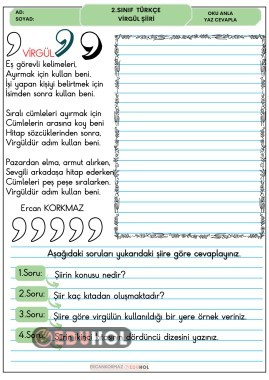 AD:
SOYAD:
2.SINIF TÜRKÇE
VİRGÜL ŞİİRİ
OKU ANLA
YAZ CEVAPLA
VİRGÜL
Eş görevli kelimeleri,
Ayırmak için kullan beni.
İşi yapan kişiyi belirtmek için
İsimden sonra kullan beni.
Sıralı cümleleri ayırmak için
Cümlelerin arasına koy beni
Hitap sözcüklerinden sonra,
Virgüldür adım kullan beni.
Pazardan elma, armut alırken,
Sevgili arkadaşa hitap ederken,
Cümleleri peş peşe sıralarken.
Virgüldür adım kullan beni.
Ercan KORKMAZ
Aşağıdaki soruları yukarıdaki şiire göre cevaplayınız.
1.Soru: Şiirin konusu nedir?
2.Soru: Şiir kaç kıtadan oluşmaktadır?
3.Soru: Şiire göre virgülün kullanıldığı bir yere örnek veriniz.
4.Soru: Şiirin ikinci kıtasının dördüncü dizesini yazınız.